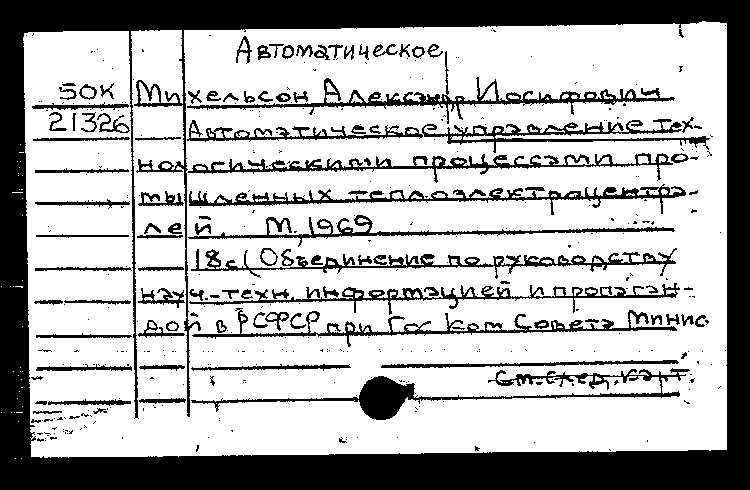 Автоматическое
50К Михельсон, Александр Иосифович
21326 Автоматическое управление тех-
нологическими процессами про-
мышленных теплоэлектроцентра-
лей. М, 1969
18с (Объединение по руководству
науч.-техн. информацией и пропаган-
дой в РСФСР при Гос Ком Совета Минис
См. след. карт.